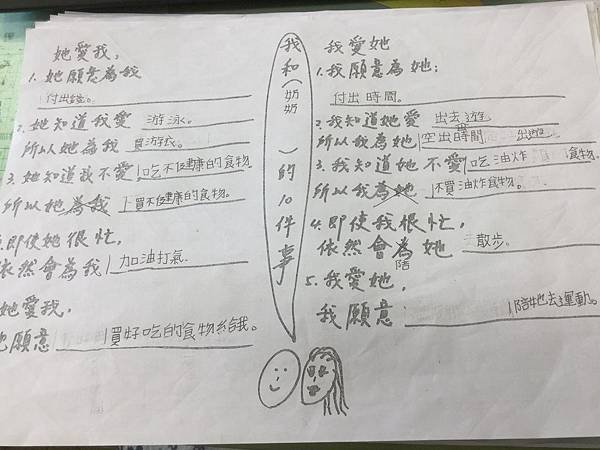 她愛我,
1. 她願意為我
付出錢。
2. 她知道我愛 游泳。
所以她為我 買游衣。
3. 她知道我不愛 吃不健康的食物
所以她為我 不買不健康的食物。
即使她很忙,
依然會為我 加油打氣
她愛我,
她願意 買好吃的食物給我。
我和(奶奶)的10件事
我愛她
1. 我願意為她:
付出時間。
2. 我知道她愛 出去遊
所以我為她 空出時間 出遊。
3. 我知道她不愛 吃油炸食物。
所以我為她 不買油炸食物。
4. 即使我很忙,
依然會陪她 散步。
5. 我愛她,
我願意 陪她去運動。